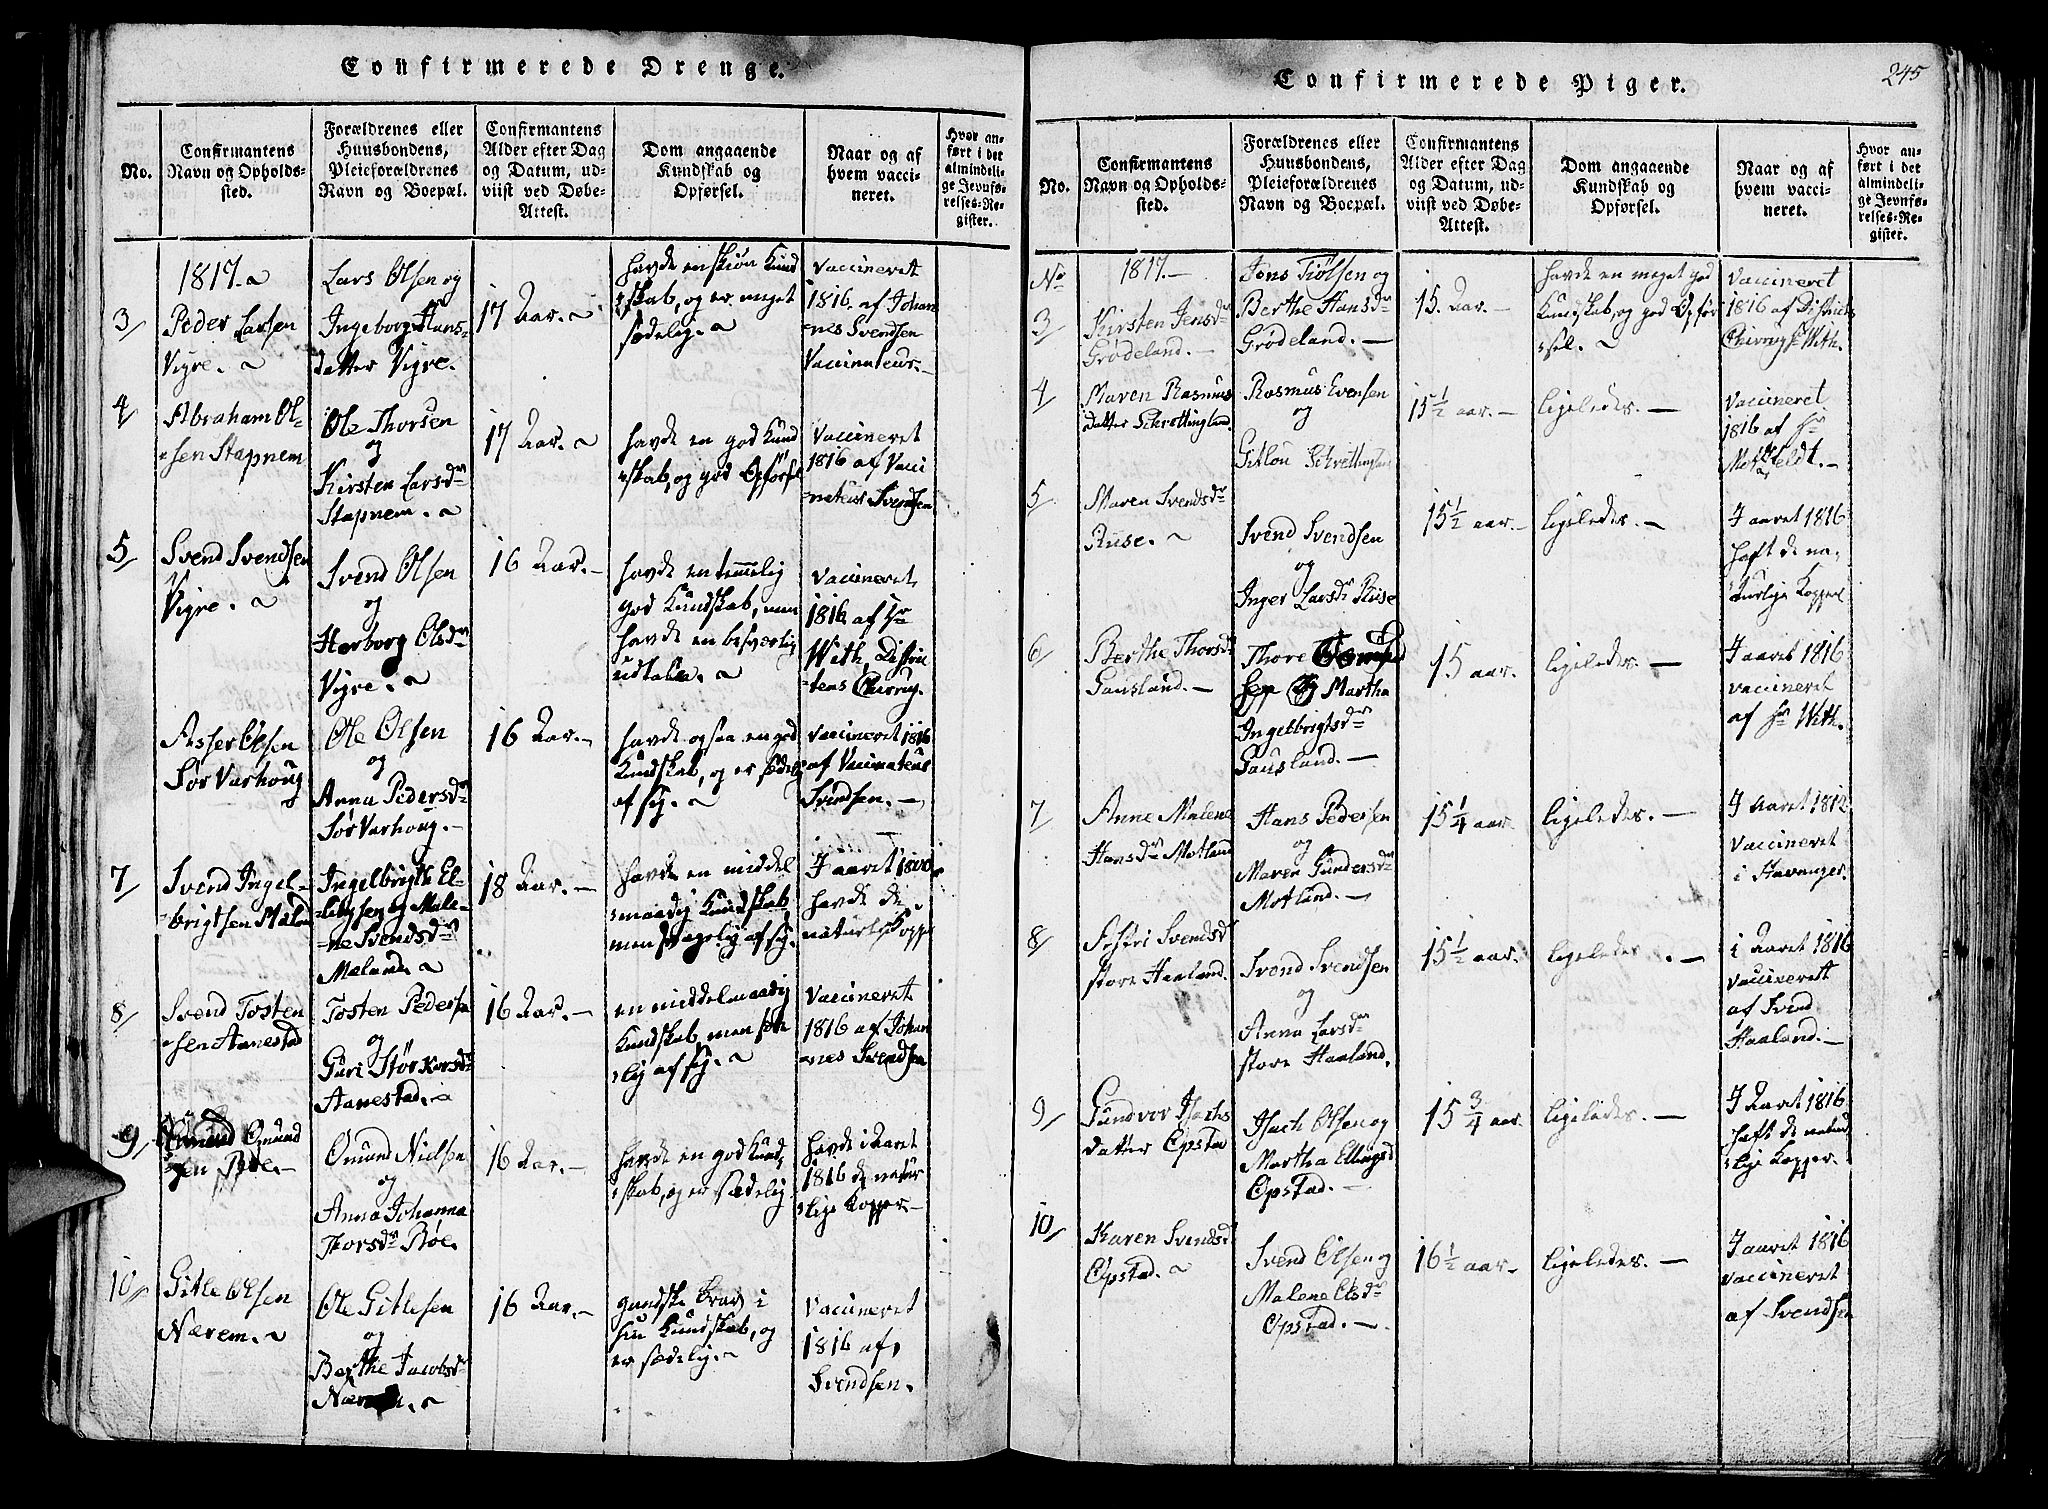 Confirmerede Drenge.
No.
Confirmantens
Navn og Opholds-
sted.
Forældrenes eller
Huusbondens,
Pleieforældrenes
Navn og Boepæl.
Confirmantens
Alder efter Dag
og Datum, ud-
viist ved Døbe-
Attest.
Dom angaaende
Kundskab og
Opførsel.
Naar og af
hvem vacci-
neret.
Hvor an-
ført i det
almindeli-
ge Jevnfø-
relses-Re-
gister.
1817.
3/
Peder Larsen
Vigre.
Lars Olsen og
Ingeborg Hans-
datter Vigre.
17 Aar.
havde en skiøn Kund
skab, og er meget
sædelig.
Vaccineret
1816. af Johan
nes Svendsen
Vaccinateur.
4/
Abraham Ol-
sen Stapnem
Ole Thorsen
og
Kirsten Larsdr
Stapnem.
17 Aar.
havde en god Kund
skab, og god Opførsel
Vaccineret
1816 af Vacci
nateur Svendsen
5/
Svend Svendsen
Vigre.
Svend Olsen
og
Herborg Olsdr
Vigre.
16 Aar.
havde en temmelig
god Kundskab, men
havde en besværlig
udtale.
Vaccineret
1816 af Hr
With, Distric
tens Chirurg.
Asser Olsen
Sør Varhoug
Ole Olsen
og
Anna Pedersdr
Sør Varhoug.
16 Aar.
havde ogsaa en god
Kundskab, og er sædelig
af sig.
Vaccineret 1816
af Vaccinateur
Svendsen.
7/
Svend Ingel-
brigtsen Mæland
Ingelbrigth El-
lingsen og Male-
ne Svendsdr
Mæland.
18 Aar.
havde en middel
maadig Kundskab,
men af sig.
I aaret 1800
havde de
naturl. Kopper
8/
Svend Tosten
sen Aanestad
Tosten Pedersen
og
Guri Størkorsdr
Aanestad.
16 Aar.
en middelmaadig
Kundskab, men sæde
lig af sig.
Vaccineret
1816 af Johan
nes Svendsen
9/
Omund
sen Bøe.
Omund Nielsen
og
Anna Johanna
Thorsdr Bøe.
16 Aar.
havde en god Kund
skab, og er sædelig
havde i Aaret
1816 de natur
lige Kopper.
10/
Gitle Olsen
Nærem.
Ole Gitlesen
og
Berthe Jacobsdr
Nærem.
16 Aar.
ganske brav i
sin Kundskab, og
er sædelig.
Vaccineret
1816 af
Svendsen.
245
Confirmerede Piger.
No.
Confirmantens
Navn og Opholds-
sted.
Forældrenes eller
Huusbondens,
Pleieforældrenes
Navn og Boepæl.
Confirmantens
Alder efter Dag
og Datum, ud-
viist ved Døbe-
Attest.
Dom angaaende
Kundskab og
Opførsel.
Naar og af
hvem vacci-
neret.
Hvor an-
ført i det
almindeli-
ge Jevnfø-
relses-Re-
gister.
No
1817.
3/
Kirsten Jensdr
Grødeland.
Jens Tiølsen og
Berthe Hansdr
Grødeland.
15. Aar.
havde en meget god
Kundskab, og god Opfør
sel.
Vaccineret
1816 af Districts
Chirurg With.
4/
Maren Rasmus
datter Schrettingland.
Rasmus Evensen
og
Gitlou Schrettingland
15 1/2 aar.
ligeledes.
Vaccineret
1816 af Hr
Motzfeldt.
5/
Maren Svendsdr
Ruse.
Svend Svendsen
og
Inger Larsdr Ruse
15 1/2 aar.
ligeledes.
I aaret 1816
haft de na-
turlige Kopper
6/
Berthe Thorsdr
Gausland.
Thore
og Martha
Ingelbrigtsdr
Gausland.
15 aar.
ligeledes.
I aaret 1816
vaccineret
af Hr With.
7/
Anne Malene
Hansdr Motland
Hans Pedersen
og
Maren Gundersdr
Motland.
15 1/4 aar.
ligeledes.
I Aaret 1812
vaccineret
i Stavanger.
8/
Svendsdr
store Haaland.
Svend Svendsen
og
Anna Larsdr
store Haaland.
15 1/2 aar.
ligeledes.
i Aaret 1816
vaccineret
af Svend
Haaland.
9/
Gundvor Isachs
datter Opstad
Isach Olsen og
Martha Ellingsd
Opstad.
15 3/4 aar.
ligeledes.
I Aaret 1816
haft de natur
lige Kopper.
10/
Karen Svendsd
Opstad.
Svend Olsen og
Malene Olsdr
Opstad.
16 1/2 aar.
ligeledes.
I aaret 1816
vaccineret
af Svendsen